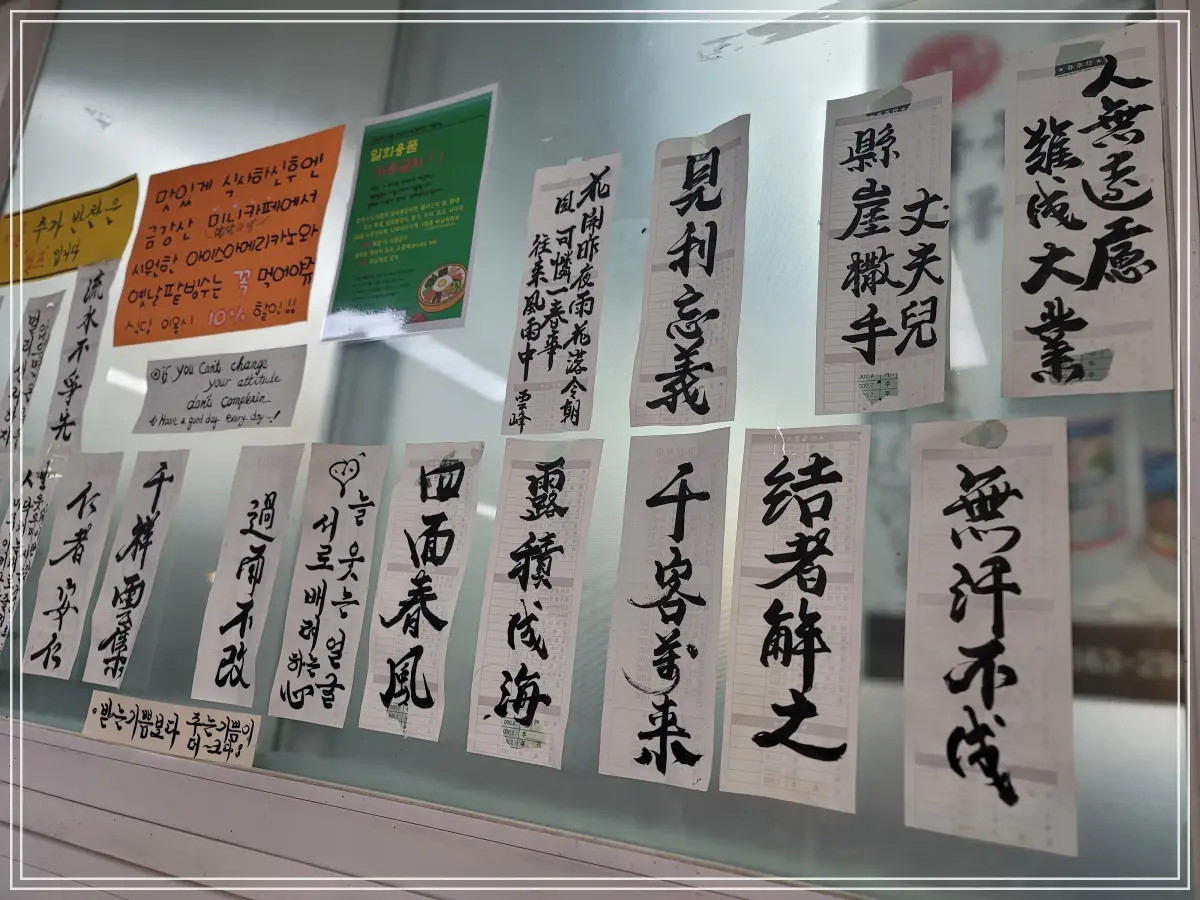 추가 반찬은
셀프 입니다
맛있게 식사하신후엔
금강산 미니카페에서
시원한 아이스아메리카노와
옛날팥빙수는 꼭 먹어야쥬
식당 이용시 10% 할인!!
일회용품
사용금지!!
流水不爭先
if you Can't change
your attitude
don't complain
Have a good day every day~!
花開昨夜雨花落今朝
風可憐一春事
往来風雨中
雲峰
見利忘義
縣崖撒手
丈夫兒
人無遠慮
難成大業
仁者安仁
千祥雲集
過而不改
늘 웃는 얼굴
서로 배려하는 心
四面春風
露積成海
千客萬来
結者解之
無汗不成
받는기쁨보다 주는기쁨이
더 크다!